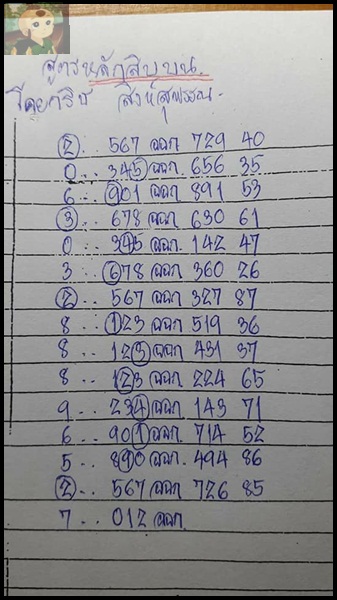 สูตรหลักสิบบน.
โดยกริช สิงห์สุพรรณ.
2.. 567 ออก 729 40
0.. 345 ออก. 656 35
6.. 901 ออก 891 53
3.. 678 ออก 630 61
0.. 345 ออก. 142 47
3.. 678 ออก 360 26
2.. 567 ออก 327 87
8.. 123 ออก 519 36
8.. 123 ออก. 431 37
8.. 123 ออก 224 65
9.. 234 ออก. 143 71
6.. 901 ออก. 714 52
5.. 890 ออก. 494 86
2.. 567 ออก 726 85
7.. 012 ออก.